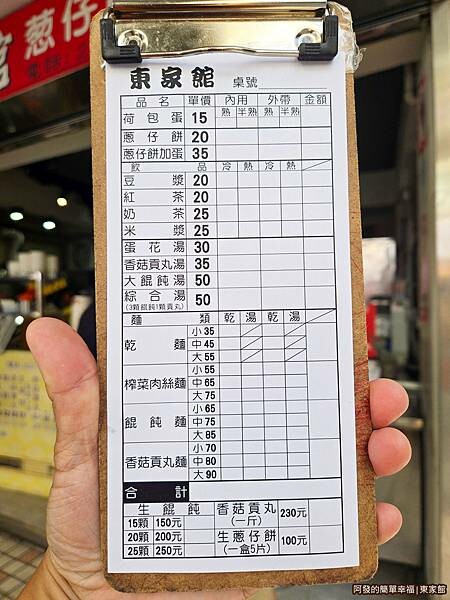 蔥仔
東家館 桌號
品名 單價 內用 外帶 金額
熟 半熟 熟 半熟
荷包蛋 15
蔥仔餅 20
蔥仔餅加蛋 35
飲品 冷 熱 冷 熱
豆漿 20
紅茶 20
奶茶 25
米漿 25
蛋花湯 30
香菇貢丸湯 35
大餛飩湯 50
綜合湯 50
(3顆餛飩1顆貢丸)
麵類 乾 湯 乾 湯
小 35
乾麵 中 45
大 55
小 55
榨菜肉絲麵 中 65
大 75
小 65
餛飩麵 中 75
大 85
小 70
香菇貢丸麵 中 80
大 90
合計
生餛飩 香菇貢丸 (一斤) 230元
15顆 150元
20顆 200元 生蔥仔餅 (一盒5片) 100元
25顆 250元
阿發的簡單幸福|東家館